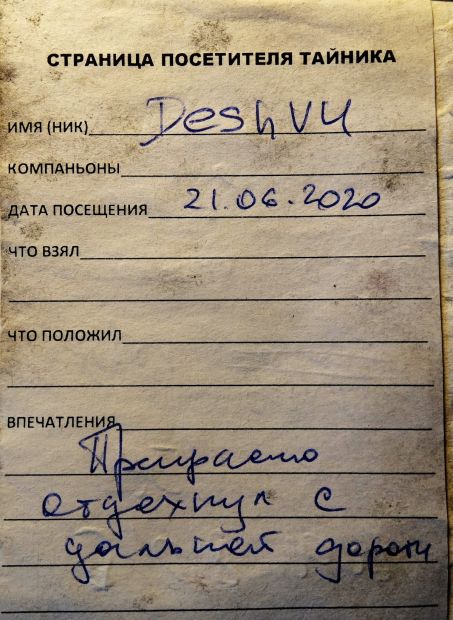 СТРАНИЦА ПОСЕТИТЕЛЯ ТАЙНИКА
ИМЯ (НИК) DeshVU
КОМПАНЬОНЫ
ДАТА ПОСЕЩЕНИЯ 21.06.2020
ЧТО ВЗЯЛ
ЧТО ПОЛОЖИЛ
ВПЕЧАТЛЕНИЯ
Прекрасно
отдохнул с
дальней дороги